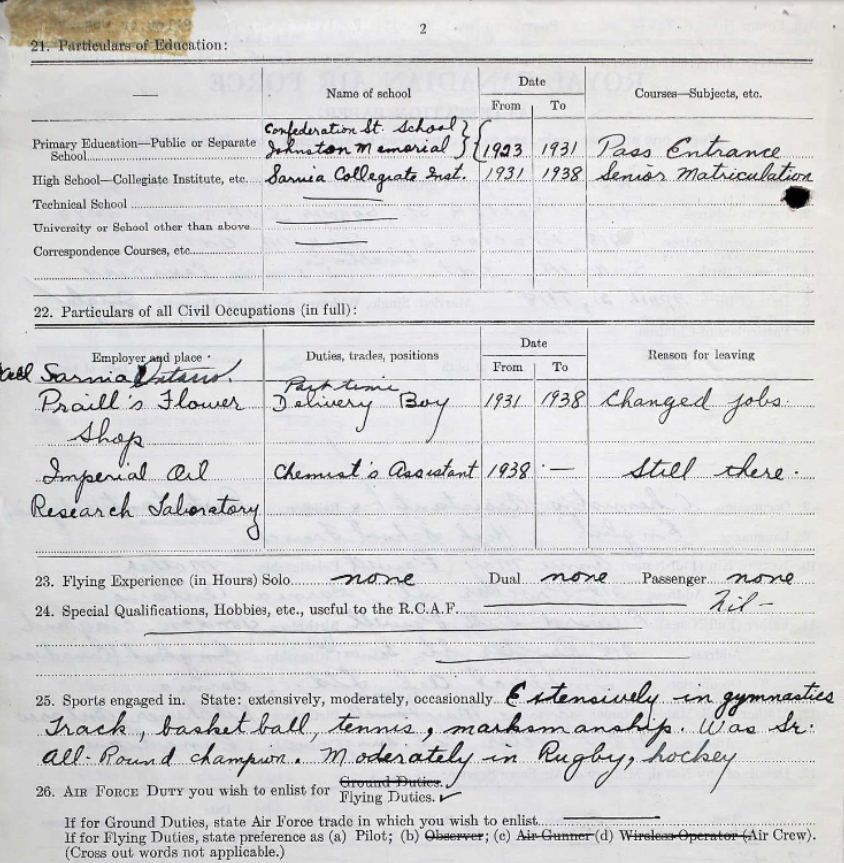 2
21. Particulars of Education:
Name of school
Date
From To
Courses—Subjects, etc.
Confederation St. School
Primary Education—Public or Separate School Johnston Memorial 1923 1931 Pass Entrance
High School—Collegiate Institute, etc. Sarnia Collegiate Inst. 1931 1938 Senior Matriculation
Technical School
University or School other than above
Correspondence Courses, etc.
22. Particulars of all Civil Occupations (in full):
Employer and place
Duties, trades, positions
Date
From To
Reason for leaving
all Sarnia Ontario.
Part time
Praill's Flower Delivery Boy 1931 1938 Changed jobs.
Shop
Imperial Oil Chemist's Assistant 1938 — Still there.
Research Laboratory
23. Flying Experience (in Hours) Solo none Dual none Passenger none
24. Special Qualifications, Hobbies, etc., useful to the R.C.A.F. Nil —
25. Sports engaged in. State: extensively, moderately, occasionally Extensively in gymnastics
Track, basket ball, tennis, marksmanship. Was Sr.
All-Round champion. Moderately in Rugby, hockey
26. AIR FORCE DUTY you wish to enlist for Ground Duties.
Flying Duties. ✓
If for Ground Duties, state Air Force trade in which you wish to enlist
If for Flying Duties, state preference as (a) Pilot; (b) Observer; (c) Air Gunner (d) Wireless Operator (Air Crew).
(Cross out words not applicable.)